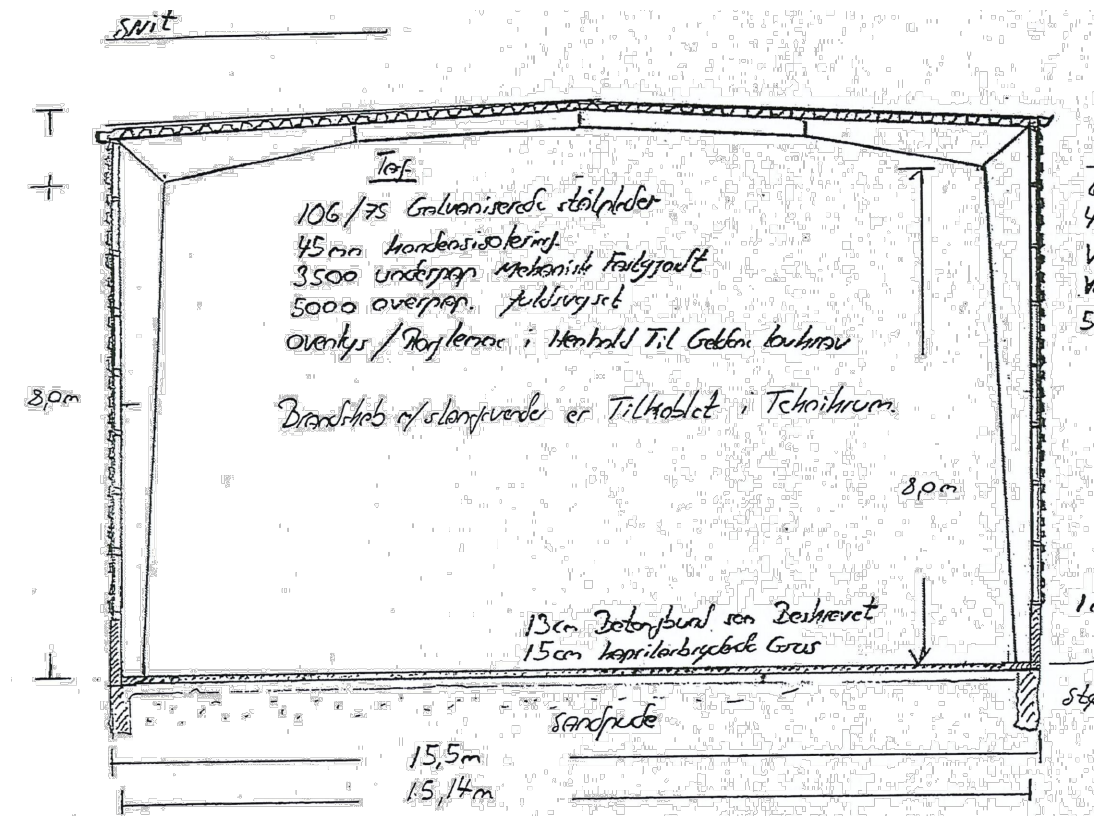 Snit
Taf.
106/75 Galvaniserede stålplader
45mm kondensisolering.
3500 underpap Mekanisk Fastgjort
5000 overpap. fuldsvejst
ovenlys / Røglemme i Henhold Til Gældene Lovkrav
Brandskab m/slangevinder er Tilkoblet i Teknikrum.
8,0m
8,0m
13cm Betongbund som Beskrevet
15cm kapilarbrydende Grus
Sandpude
15,5m
15,14m